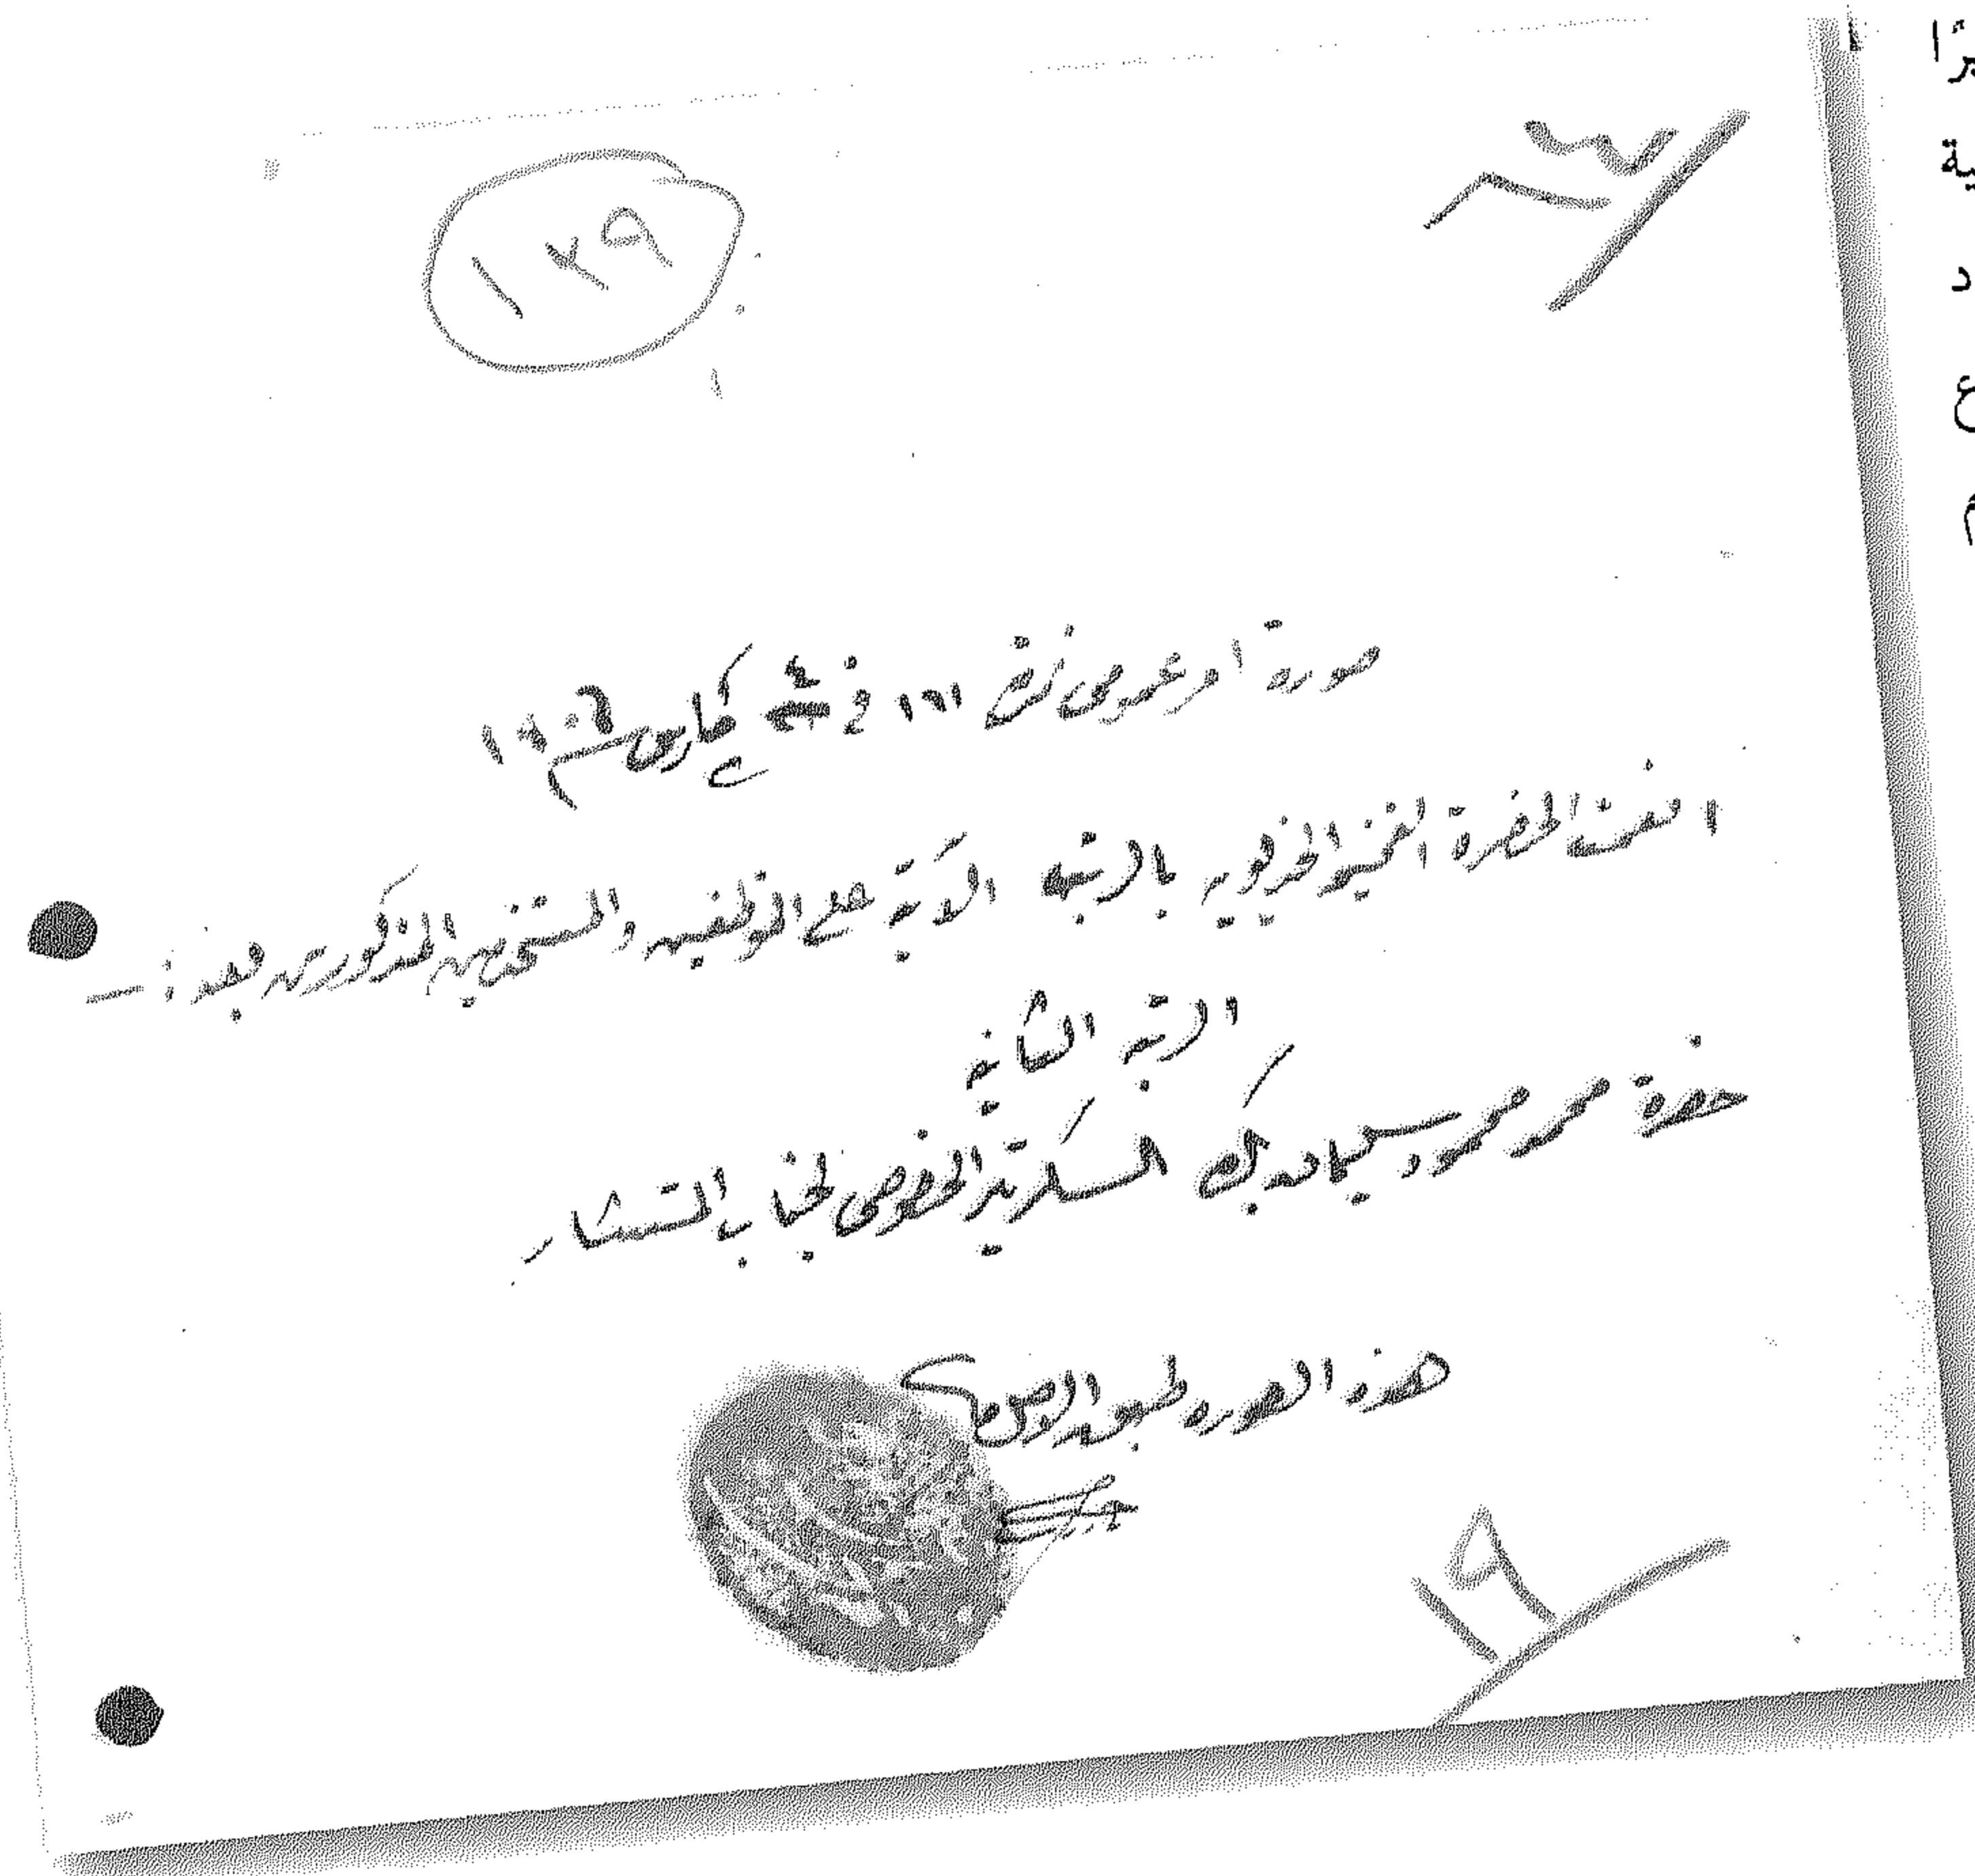 ١٢٩
صورة امر عمومى نمرة ١٦١ فى ٤ مارس سنة ١٩٠٦
انعمت الحضرة الفخيمة الخديوية بالرتبه الآتية على الموظفين والمستخدمين المذكورين بعد : —
الرتبه الثانية
حضرة محمد محمود سليمان بك السكرتير الخصوصى لجناب المستشار
هذه الصوره طبق الاصل
١٩